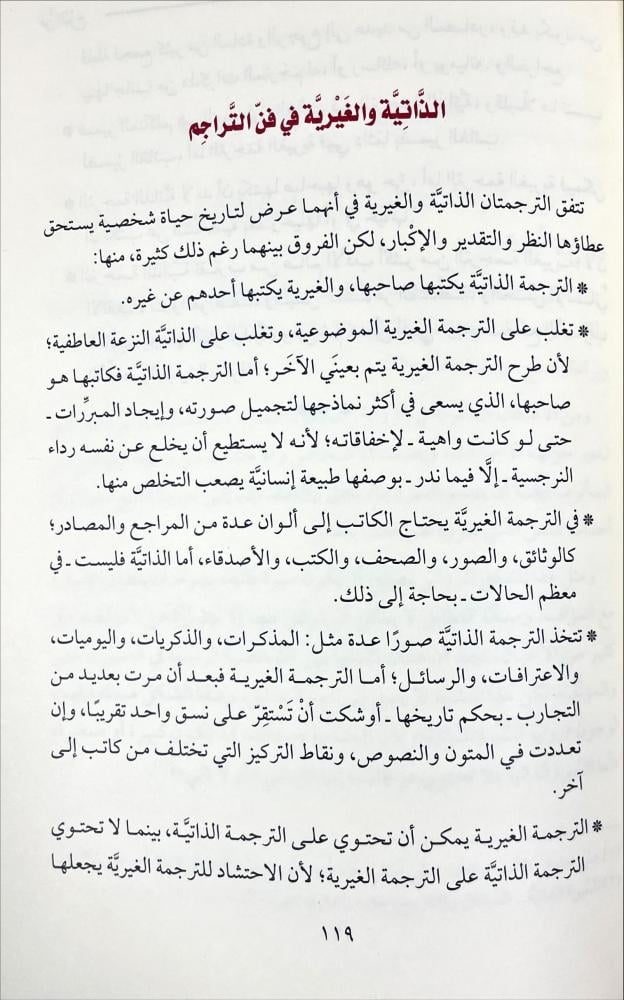 الذَّاتِيَّة والغَيْرِيَّة في فنّ التَّراجِم
تتفق الترجمتان الذاتيَّة والغيرية في أنهما عرض لتاريخ حياة شخصية يستحق
عطاؤها النظر والتقدير والإكْبار، لكن الفروق بينهما رغم ذلك كثيرة، منها:
* الترجمة الذاتيَّة يكتبها صاحبها، والغيرية يكتبها أحدهم عن غيره.
* تغلب على الترجمة الغيرية الموضوعية، وتغلب على الذاتيَّة النزعة العاطفية؛
لأن طرح الترجمة الغيرية يتم بعينَي الآخَر؛ أما الترجمة الذاتيَّة فكاتبها هو
صاحبها، الذي يسعى في أكثر نماذجها لتجميل صورته، وإيجاد المبرِّرات ـ
حتى لو كانت واهية ـ لإخفاقاته؛ لأنه لا يستطيع أن يخلع عن نفسه رداء
النرجسية ـ إلَّا فيما ندر ـ بوصفها طبيعة إنسانيَّة يصعب التخلص منها.
* في الترجمة الغيريَّة يحتاج الكاتب إلى ألوان عدة من المراجع والمصادر؛
كالوثائق، والصور، والصحف، والكتب، والأصدقاء، أما الذاتيَّة فليست ـ في
معظم الحالات ـ بحاجة إلى ذلك.
* تتخذ الترجمة الذاتيَّة صورًا عدة مثل: المذكرات، والذكريات، واليوميات،
والاعترافات، والرسائل؛ أما الترجمة الغيرية فبعد أن مرت بعديد من
التجارب ـ بحكم تاريخها ـ أوشكت أنْ تَسْتقِرّ على نسق واحد تقريبًا، وإن
تعددت في المتون والنصوص، ونقاط التركيز التي تختلف من كاتب إلى
آخر.
* الترجمة الغيرية يمكن أن تحتوي على الترجمة الذاتيَّة، بينما لا تحتوي
الترجمة الذاتيَّة على الترجمة الغيرية؛ لأن الاحتشاد للترجمة الغيريَّة يجعلها
١١٩